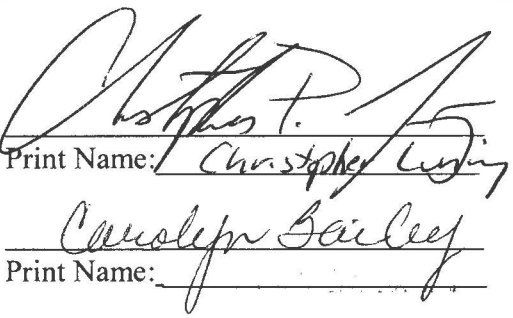 Christopher P.
Print Name: Christopher
Carolyn Bailey
Print Name: